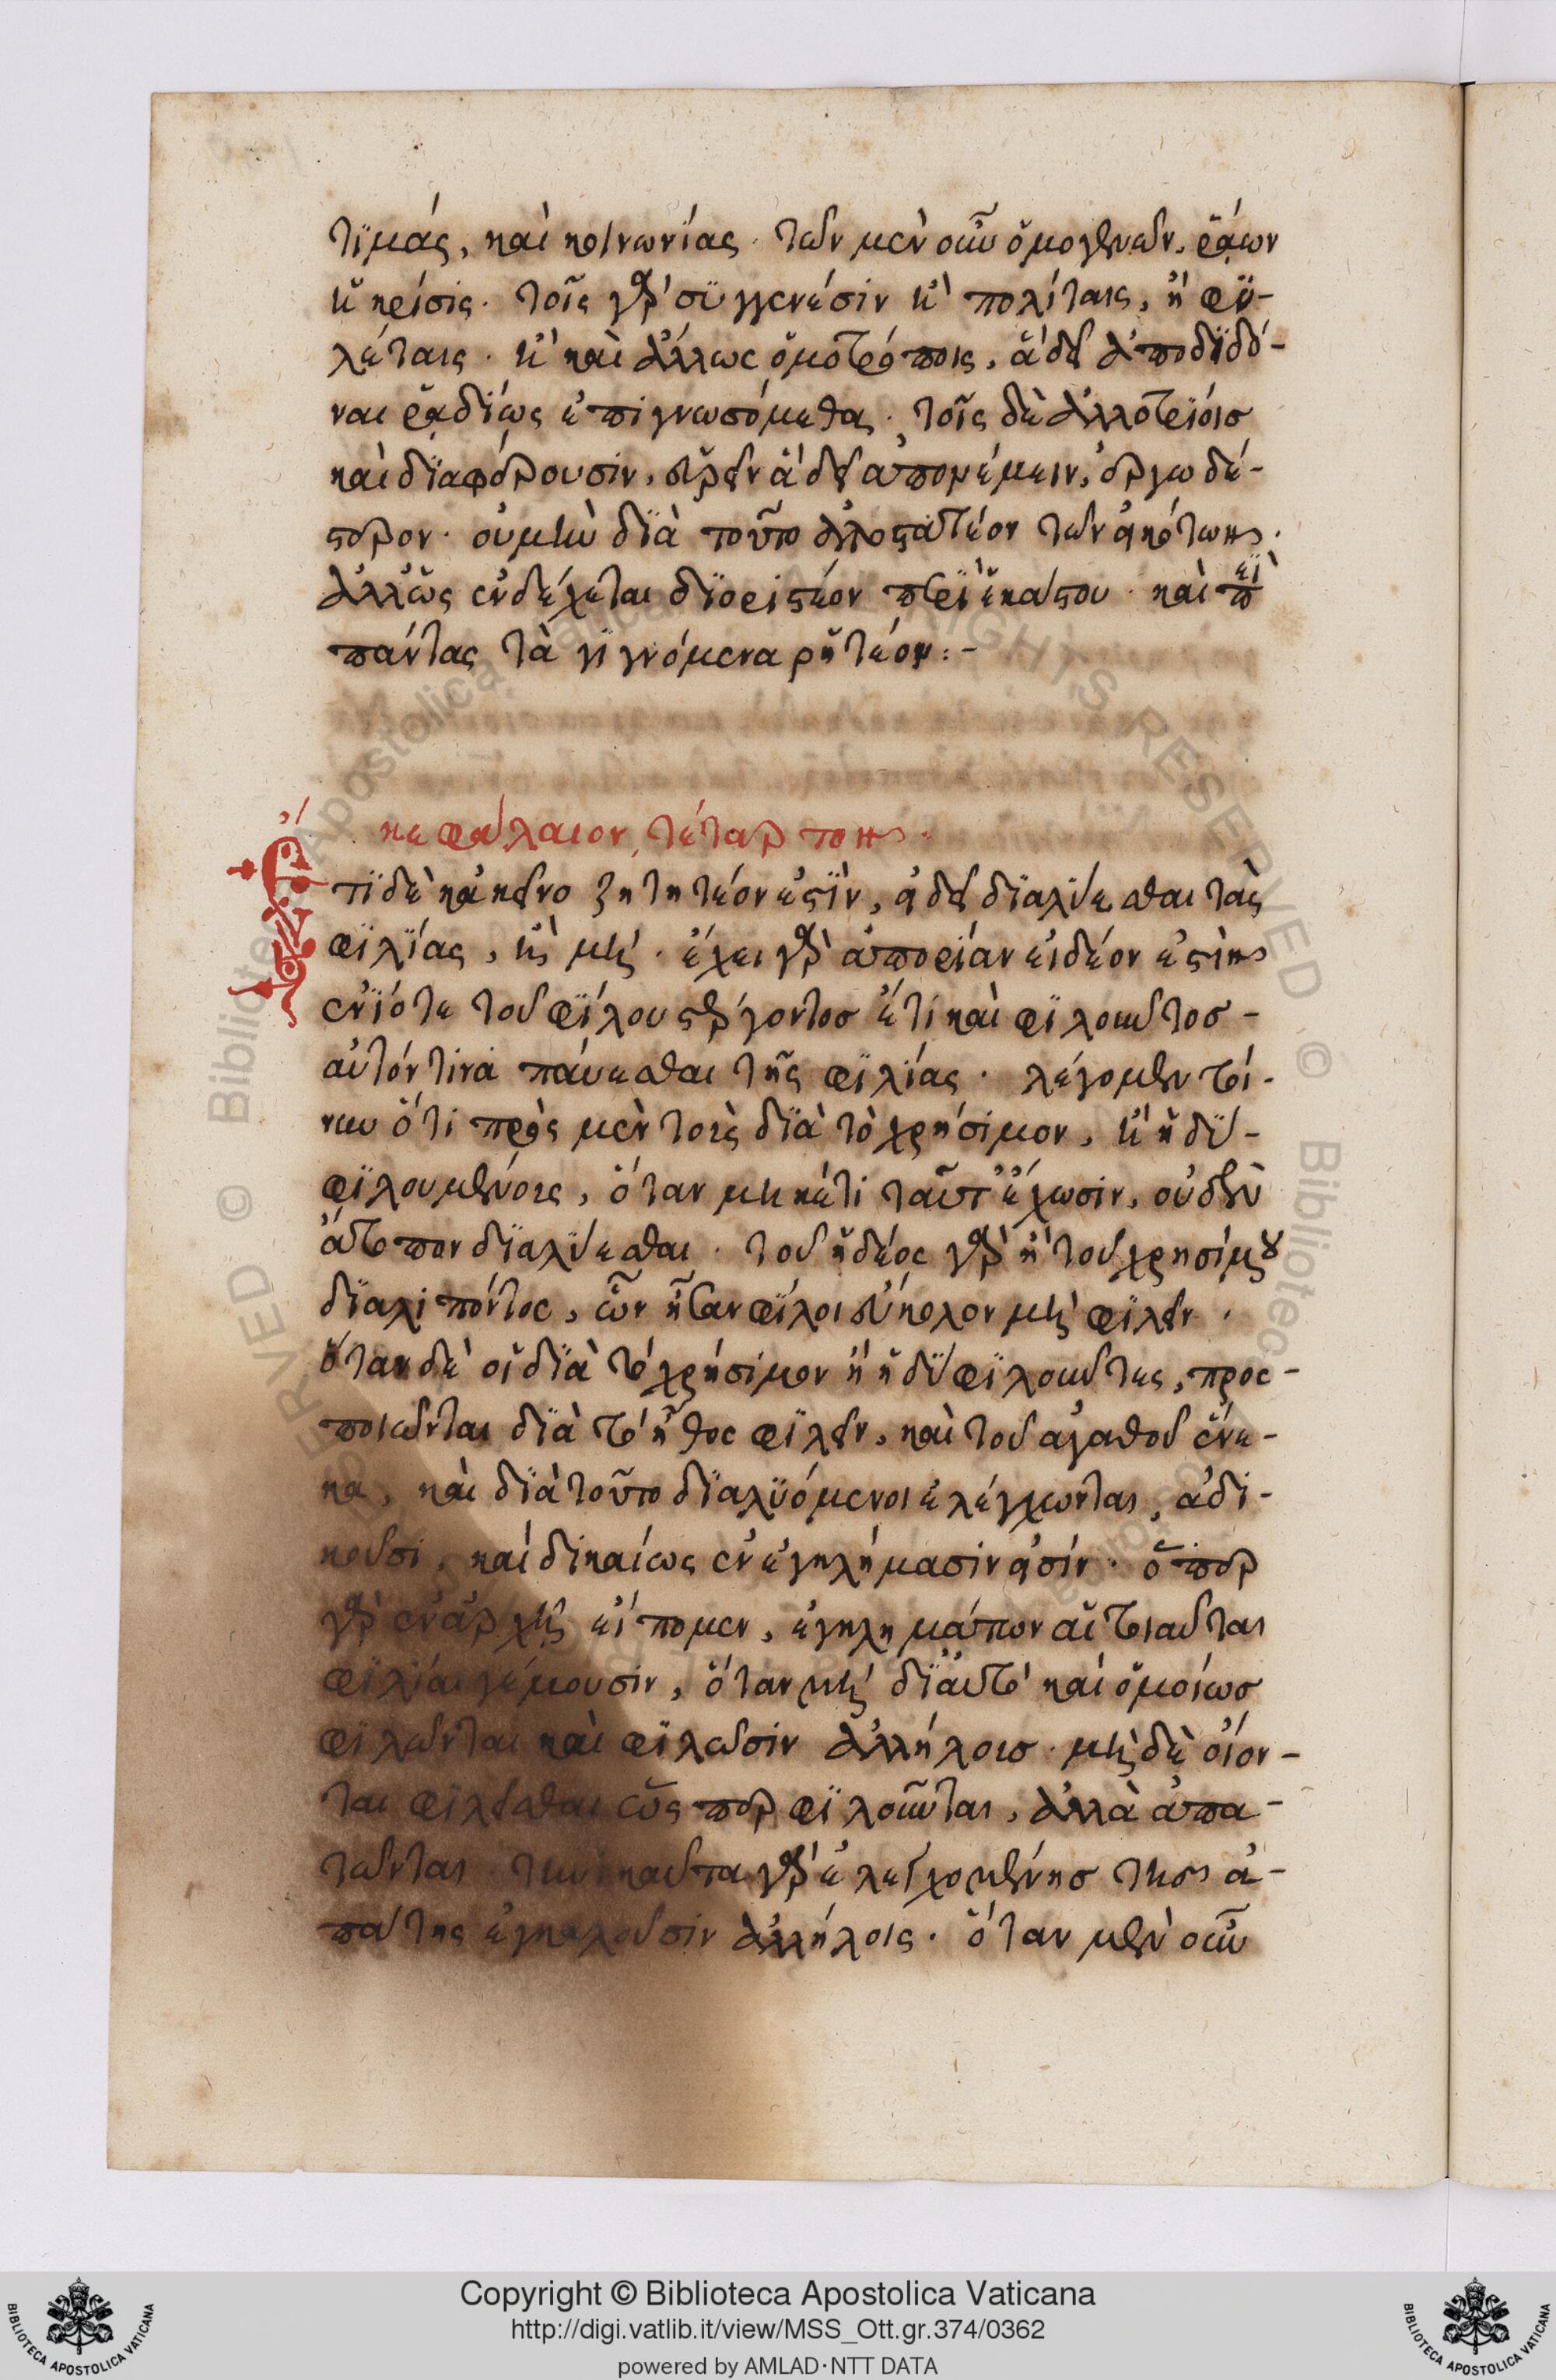 τϊμάς, καὶ κοινωνίας. τῶν μὲν οὖν ὁμογενῶν, ῥᾴων
ἡ κρίσις. τοῖς γὰρ συγγενέσιν ἢ πολίταις, ἢ φϋ-
λέταις. ἢ καὶ ἄλλως ὁμοτρόποις, ἃ δεῖ ἀποδϊδό-
ναι ῥᾳδίως ἐπιγνωσόμεθα. τοῖς δὲ ἀλλοτρίοισ
καὶ δϊαφέρουσιν, εὑρεῖν ἃ δεῖ ἀπονέμειν, ἐργωδέ-
στερον. οὐ μὴν δϊὰ τοῦτο ἀποστατέον τῶν εἰκότων.
ἀλλ' ὡς ἐνδέχεται δϊοριστέον περὶ ἑκάστου. καὶ περὶ
πάντας τὰ γϊγνόμενα ῥητέον:-
κεφάλαιον τέταρτον.
Ἔτϊ δὲ κἀκεῖνο ζητητέον ἐστὶν, εἰ δεῖ δϊαλύεσθαι τὰς
φϊλϊας, ἢ μή. ἔχει γὰρ ἀπορίαν εἰ δέον ἐστὶν
ἐνϊότε τοῦ φϊλου στέργοντοσ ἔτι καὶ φϊλοῦντοσ-
αὐτόν τινα παύεσθαι τῆς φϊλϊας. λέγομεν τοί-
νυν ὅτι πρὸς μὲν τοὺς δϊὰ τὸ χρήσιμον, ἢ ἡδὺ-
φϊλουμένους, ὅταν μηκέτι ταῦτ' ἔχωσιν, οὐδὲν
ἄτοπον δϊαλύεσθαι. τοῦ ἡδέος γὰρ ἢ τοῦ χρησίμου
δϊαλιπόντος, ὧν ἦσαν φίλοι εὔκολον μὴ φϊλεῖν.
ὅταν δὲ οἱ δϊὰ τὸ χρήσιμον ἢ ἡδὺ φϊλοῦντες, προς-
ποιῶνται δϊὰ τὸ ἦθος φϊλεῖν, καὶ τοῦ ἀγαθοῦ ἕνε-
κα, καὶ δϊὰ τοῦτο δϊαλϋόμενοι ἐλέγχωνται, ἀδι-
κοῦσι, καὶ δικαίως ἐν ἐγκλήμασιν εἰσίν. ὅπερ
γὰρ ἐν ἀρχῇ εἴπομεν, ἐγκλημάτων αἱ τοιαῦται
φϊλϊαι γέμουσιν, ὅταν μὴ δϊ' αὐτὸ καὶ ὁμοίωσ
φϊλῶνται καὶ φϊλῶσιν ἀλλήλουσ. μὴ δὲ οἴον-
ται φϊλεῖσθαι ὥσπερ φϊλοῦνται, ἀλλὰ ἀπα-
τῶνται. τηνικαῦτα γὰρ ἐλεγχομένησ τῆσ ἀ-
πάτης ἐγκαλοῦσιν ἀλλήλοις. ὅταν μὲν οὖν
Copyright © Biblioteca Apostolica Vaticana
http://digi.vatlib.it/view/MSS_Ott.gr.374/0362
powered by AMLAD·NTT DATA